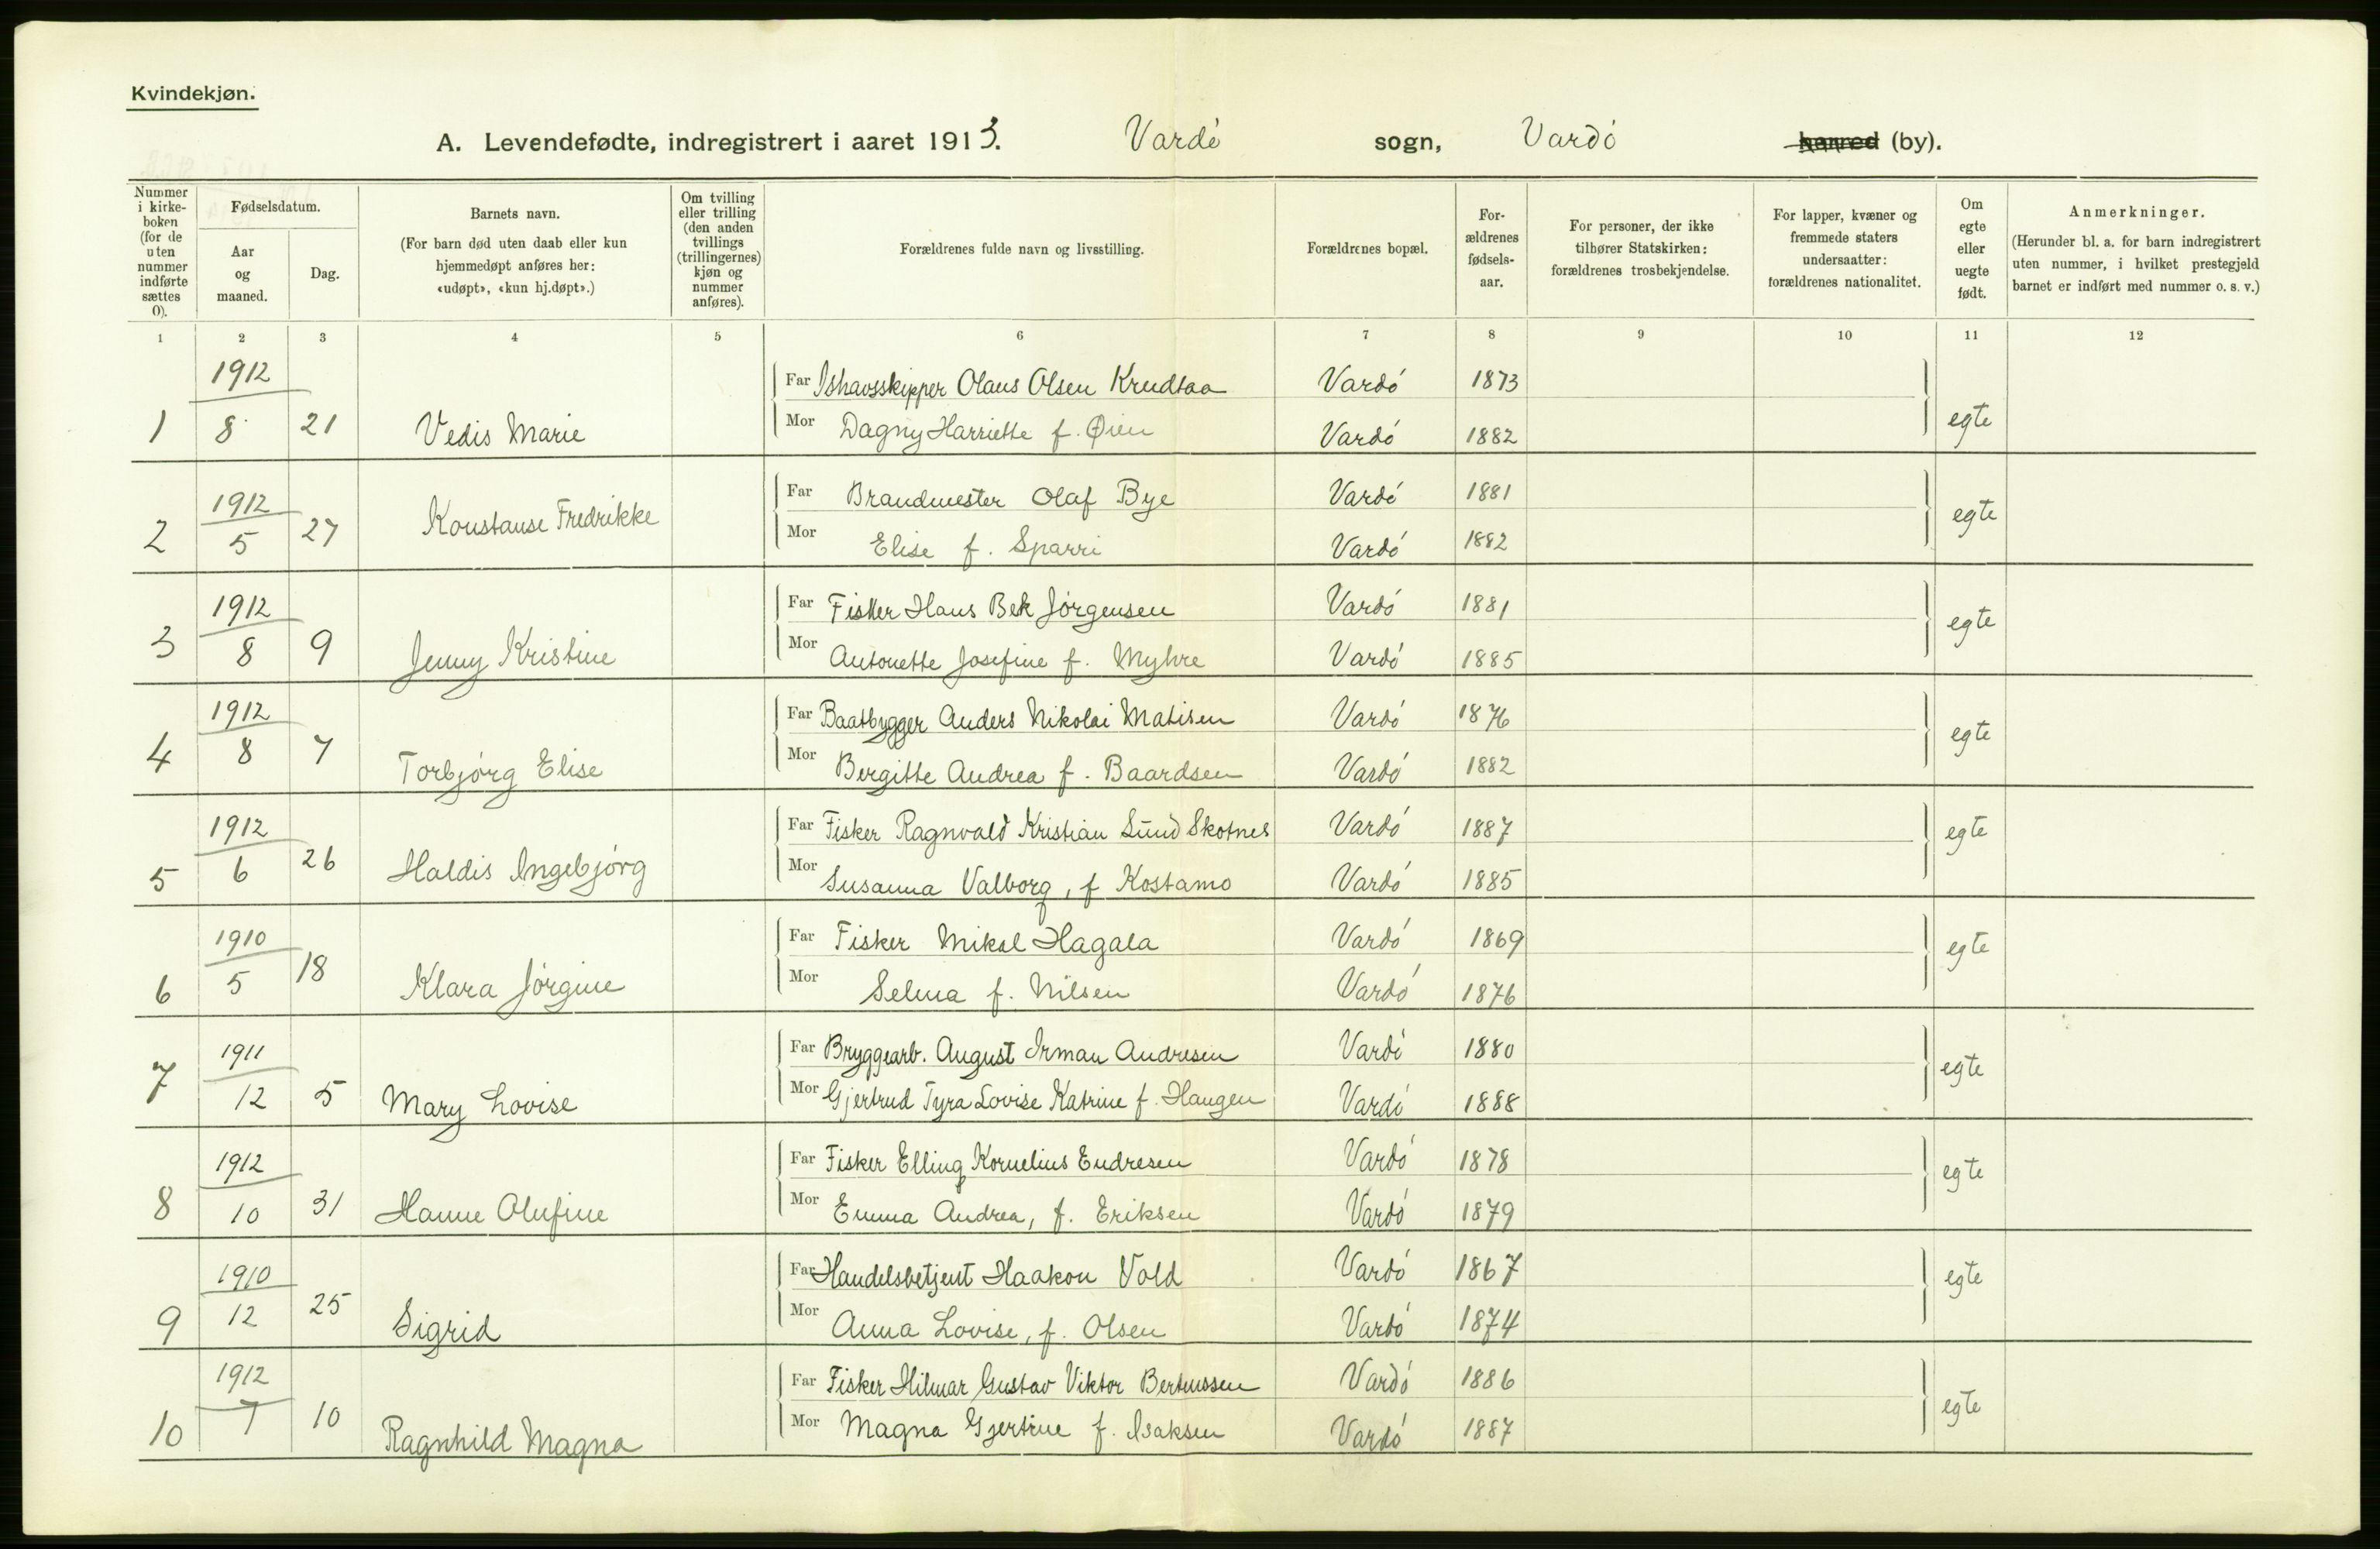 Kvindekjøn.
A. Levendefødte, indregistrert i aaret 1913. Vardó sogn, Vardó herred (by).
Nummer i kirkeboken (for de uten nummer indførte sættes 0).
Fødselsdatum.
Aar og maaned.
Dag.
Barnets navn.
(For barn død uten daab eller kun hjemmedøpt anføres her: «udøpt», «kun hj.døpt».)
Om tvilling eller trilling (den anden tvillings (trillingernes) kjøn og nummer anføres).
Forældrenes fulde navn og livsstilling.
Forældrenes bopæl.
Forældrenes fødselsaar.
For personer, der ikke tilhører Statskirken: forældrenes trosbekjendelse.
For lapper, kvæner og fremmede staters undersaatter: forældrenes nationalitet.
Om egte eller uegte født.
Anmerkninger.
(Herunder bl. a. for barn indregistrert uten nummer, i hvilket prestegjeld barnet er indført med nummer o. s. v.)
1 2 3 4 5 6 7 8 9 10 11 12
1912 Far Ishavsskipper Olaus Olsen Krudtaa Vardó 1873
1 8 21 Vedis Marie Mor Dagny Harriette f. Øien Vardó 1882 egte
1912 Far Brandmester Olaf Bye Vardó 1881
2 5 27 Konstanse Fredrikke Mor Elise f. Sparri Vardó 1882 egte
1912 Far Fisker Hans Bek Jórgensen Vardó 1881
3 8 9 Jenny Kristine Mor Antonette Josefine f. Myhre Vardó 1885 egte
1912 Far Baatbygger Anders Nikolai Matisen Vardó 1876
4 8 7 Torbjórg Elise Mor Bergitte Andrea f. Baardsen Vardó 1882 egte
1912 Far Fisker Ragnvald Kristian Lund Skotnes Vardó 1887
5 6 26 Haldis Ingebjórg Mor Susanna Valborg, f Kostamo Vardó 1885 egte
1910 Far Fisker Mikal Hagala Vardó 1869
6 5 18 Klara Jórgine Mor Selma f. Nilsen Vardó 1876 egte
1911 Far Bryggearb. August Irman Andresen Vardó 1880
7 12 5 Mary Lovise Mor Gjertrud Tyra Lovise Katrine f. Haugen Vardó 1888 egte
1912 Far Fisker Elling Kornelius Endresen Vardó 1878
8 10 31 Hanne Olufine Mor Emma Andrea, f. Eriksen Vardó 1879 egte
1910 Far Handelsbetjent Haakon Vold Vardó 1867
9 12 25 Sigrid Mor Anna Lovise, f. Olsen Vardó 1874 egte
1912 Far Fisker Hilmar Gustav Viktor Berteussen Vardó 1886
10 7 10 Ragnhild Magna Mor Magna Gjertine f. Isaksen Vardó 1887 egte